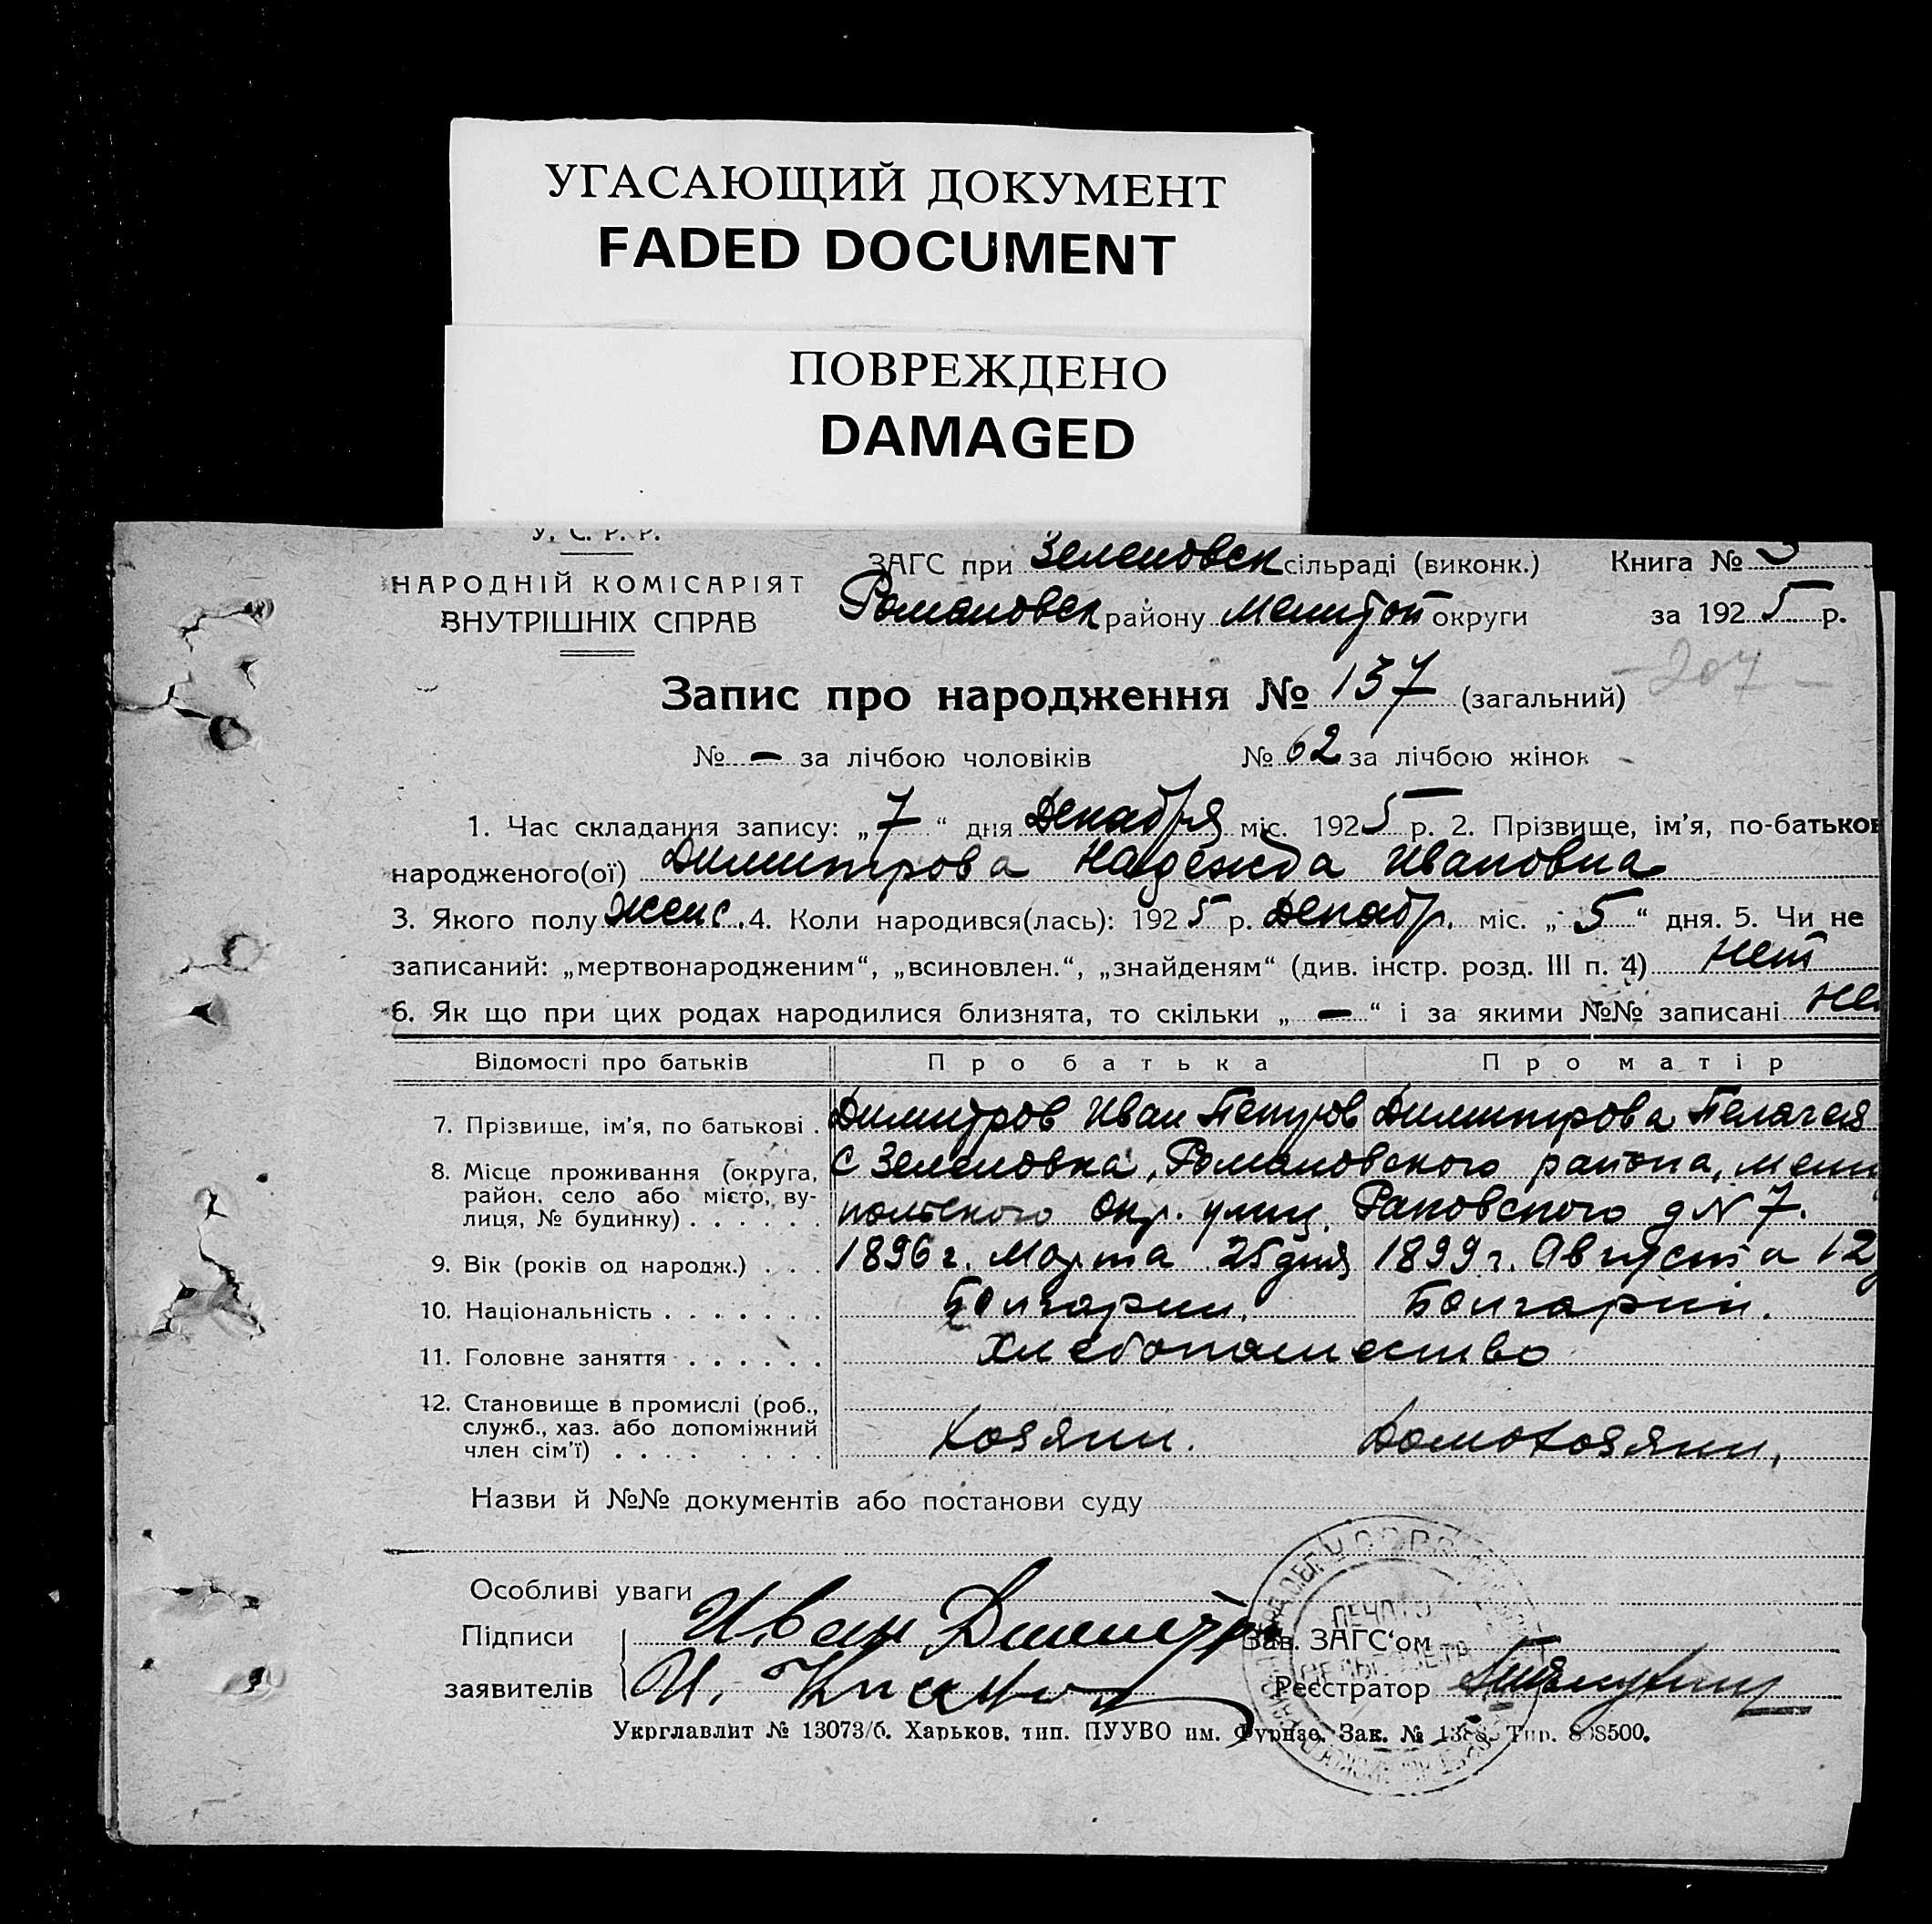 УГАСАЮЩИЙ ДОКУМЕНТ
FADED DOCUMENT
ПОВРЕЖДЕНО
DAMAGED
У. С. Р. Р.
НАРОДНІЙ КОМІСАРІЯТ
ВНУТРІШНІХ СПРАВ
ЗАГС при Зеленовск сільраді (виконк.) Книга № 3
Романовск району Мелитоп округи за 1925 р.
- 207 -
Запис про народження № 137 (загальний)
№ — за лічбою чоловіків № 62 за лічбою жінок
1. Час складання запису: „7“ дня Декабря міс. 1925 р. 2. Прізвище, ім’я, по-батьков
народженого(ої) Димитрова Надежда Ивановна
3. Якого полу женс. 4. Коли народився(лась): 1925 р. Декабр. міс. „5“ дня. 5. Чи не
записаний: „мертвонародженим“, „всиновлен.“, „знайденям“ (див. інстр. розд. III п. 4) нет
6. Як що при цих родах народилися близнята, то скільки „—“ і за якими №№ записані не
Відомості про батьків Про батька Про матір
7. Прізвище, ім’я, по батькові . Димитров Иван Петров Димитрова Пелагея
8. Місце проживання (округа, район, село або місто, вулиця, № будинку) . . . . . . с Зеленовка, Романовского района, Мели
польского Окр. улиц. Раковского д N 7.
9. Вік (років од народж.) . . . 1896 г. Марта 25 дня 1899 г. Августа 12
10. Національність . . . . . . . Болгарин. Болгарин.
11. Головне заняття . . . . . . Хлебопашество
12. Становище в промислі (роб., служб., хаз. або допоміжний член сім’ї) . . . . Хозяин. Домохозяин,
Назви й №№ документів або постанови суду
Особливі уваги
Підписи Иван Димитр Зав. ЗАГС‘ом
заявителів И. Реєстратор
ПЕЧАТЬ
СЕЛЬСОВЕТА
Укрглавлит № 13073/б. Харьков, тип. ПУУВО им. Фрунзе. Зак. № Тир.